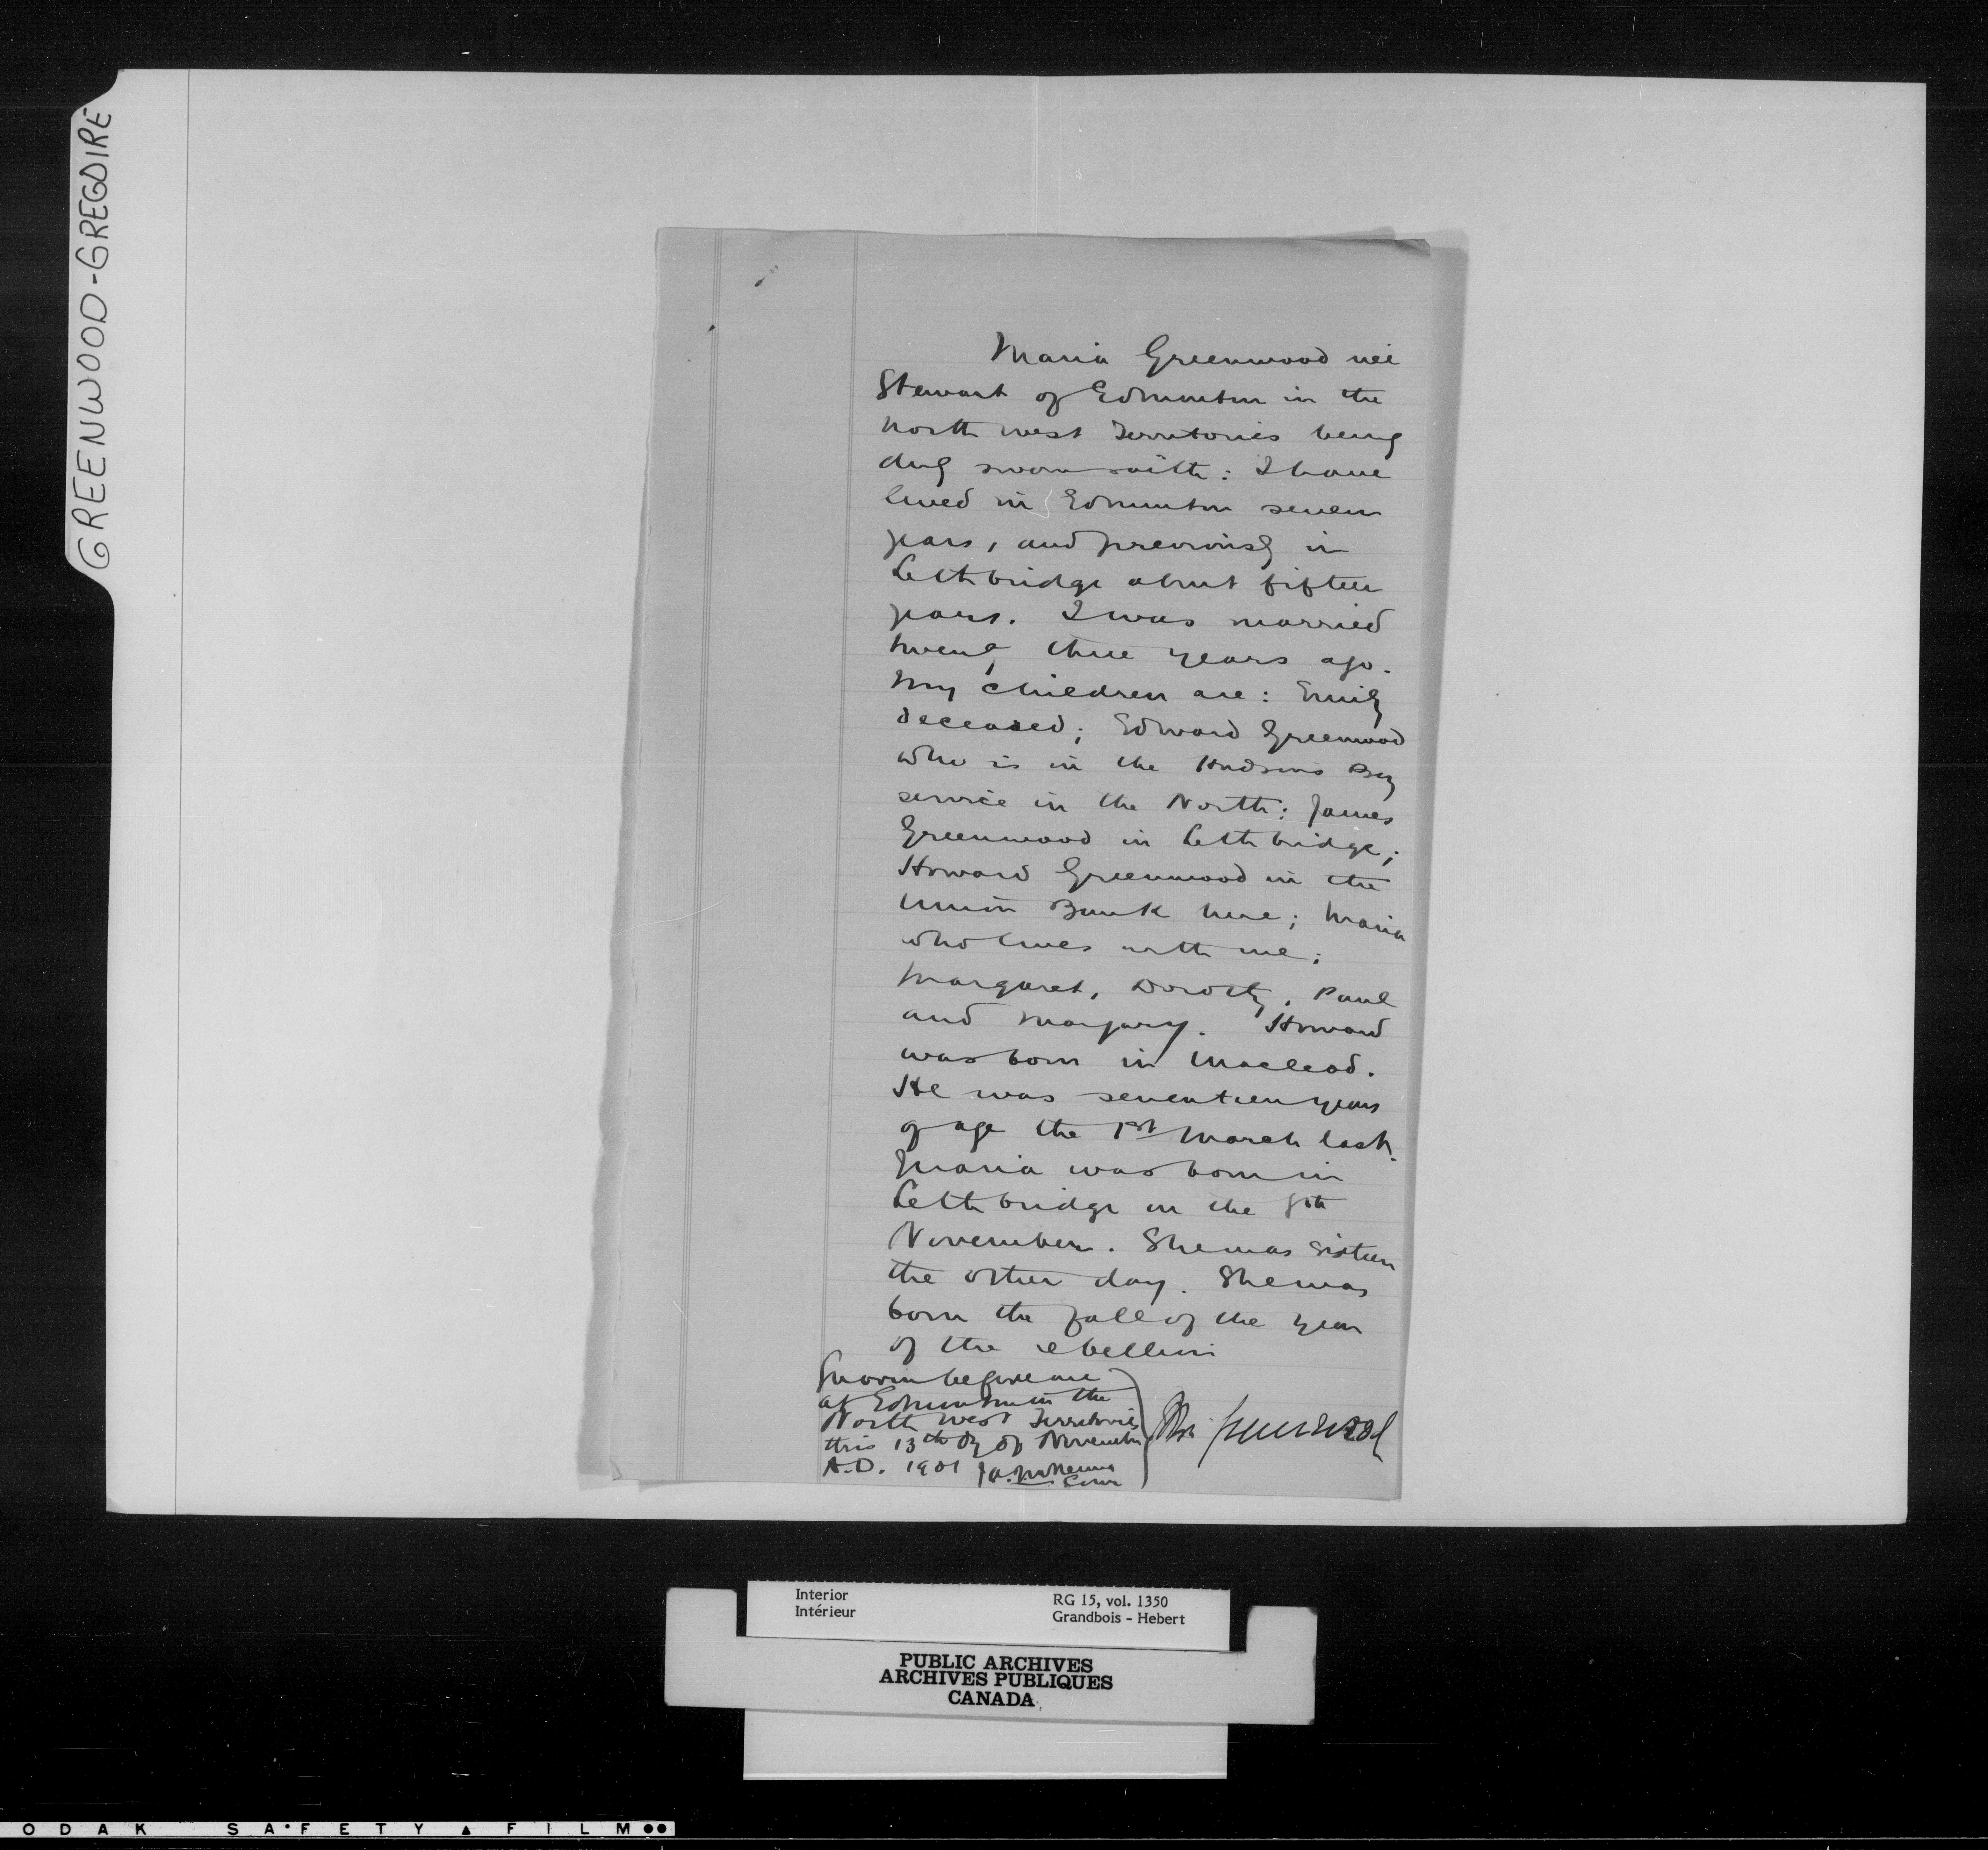 GREENWOOD-GREGOIRE
Maria Greenwood née
Stewart of Edmonton in the
North West Territories being
duly sworn saith: I have
lived in Edmonton seven
years, and previously in
Lethbridge about fifteen
years. I was married
twenty three years ago.
My children are: Emily
deceased; Edward Greenwood
who is in the Hudsons Bay
service in the North; James
Greenwood in Lethbridge;
Howard Greenwood in the
Union Bank here; Maria
who lives with me;
Margaret, Dorothy, Paul
and Marjory. Howard
was born in Macleod.
He was seventeen years
of age the 1st March last.
Maria was born in
Lethbridge on the 8th
November. She was sixteen
the other day. She was
born the fall of the year
of the rebellion
Sworn before me
at Edmonton in the
North West Territories
this 13th dy of November
A.D. 1901 J.A. McKenna
Com
Greenwood
Interior
Intérieur
RG 15, vol. 1350
Grandbois - Hebert
PUBLIC ARCHIVES
ARCHIVES PUBLIQUES
CANADA
ODAK SAFETY FILM